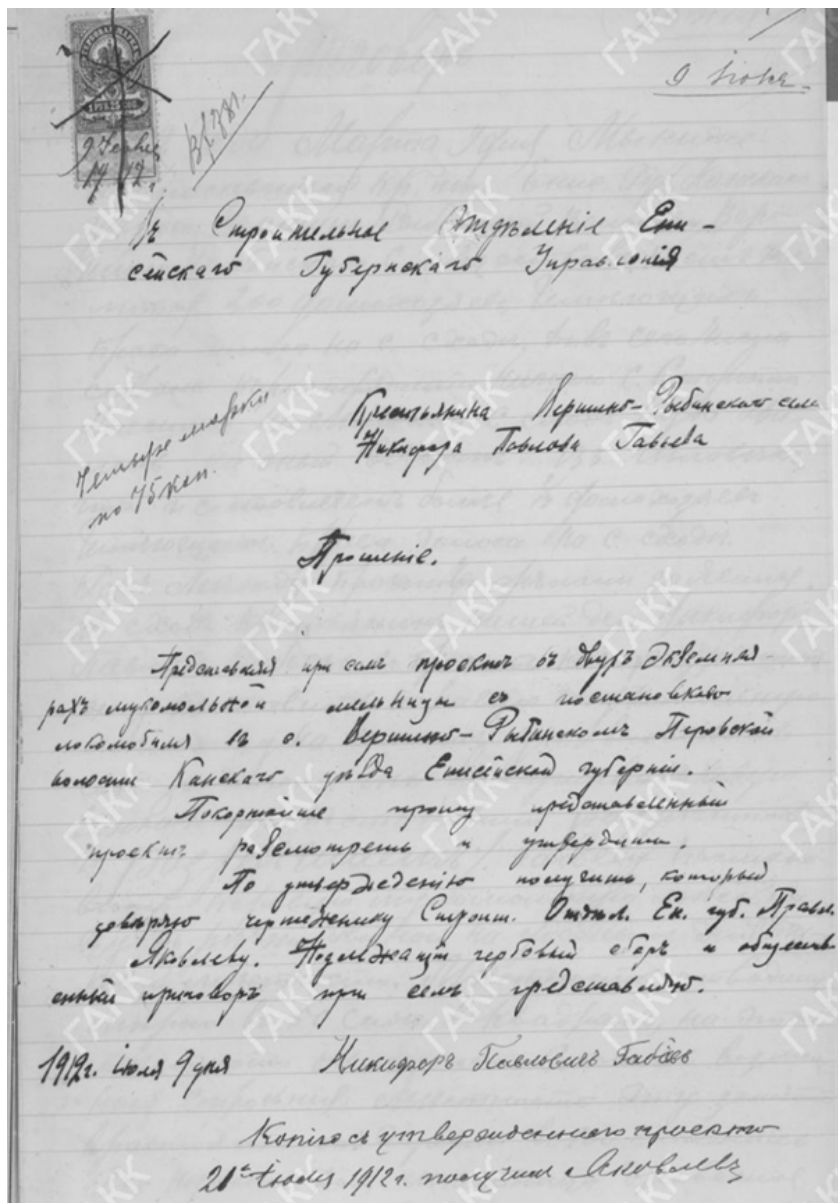 9 Июля
9 Іюля
1912 г.
Въ Строительное Отдѣленіе Ени-
сейскаго Губернскаго Управленія
Четыре марки
по 75 коп.
Крестьянина Вершино-Рыбинскаго села
Никифора Павлова
Прошеніе.
Представляя при семъ проектъ въ двухъ экземпля-
рахъ мукомольной мельницы съ постановкою
локомобиля въ с. Вершино-Рыбинскомъ Перовской
волости Канскаго уѣзда Енисейской губерніи.
Покорнѣйше прошу представленный
проектъ разсмотреть и утвердить.
По утвержденію получить, который
довѣряю чертежнику Строит. Отдѣл. Ен. губ. Правл.
Яковлеву. Подлежащій гербовый сборъ и обществ-
енный приговоръ при семъ представляю.
1912 г. іюля 9 дня Никифоръ Павловичъ
Копію съ утвержденнаго проекта
21го Іюля 1912 г. получилъ Яковлевъ
ГАКК